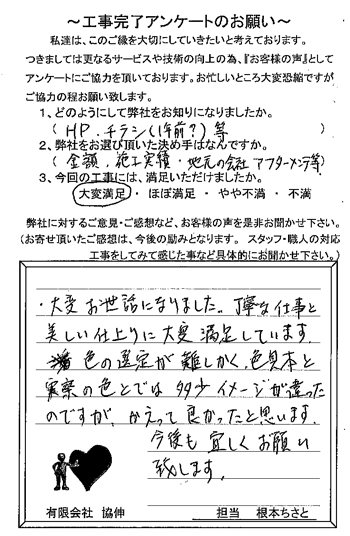 ～工事完了アンケートのお願い～
私達は、このご縁を大切にしていきたいと考えております。
つきましては更なるサービスや技術の向上の為、『お客様の声』として
アンケートにご協力を頂いております。お忙しいところ大変恐縮ですが
ご協力の程お願い致します。
1、どのようにして弊社をお知りになりましたか。
( HP. チラシ(1年前?)等 )
2、弊社をお選び頂いた決め手はなんですか。
( 金額. 施工実績・地元の会社 アフターメンテ等)
3、今回の工事には、満足いただけましたか。
大変満足 ・ ほぼ満足 ・ やや不満 ・ 不満
弊社に対するご意見・ご感想など、お客様の声を是非お聞かせ下さい。
(お寄せ頂いたご感想は、今後の励みとなります。 スタッフ・職人の対応
工事をしてみて感じた事など具体的にお聞かせ下さい。)
・大変お世話になりました。丁寧な仕事と
美しい仕上りに大変満足しています.
色の選定が難しかく、色見本と
実際の色とでは多少イメージが違った
のですが、かえって良かったと思います.
今後も宜しくお願い
致します.
有限会社 協伸
担当 根本ちさと